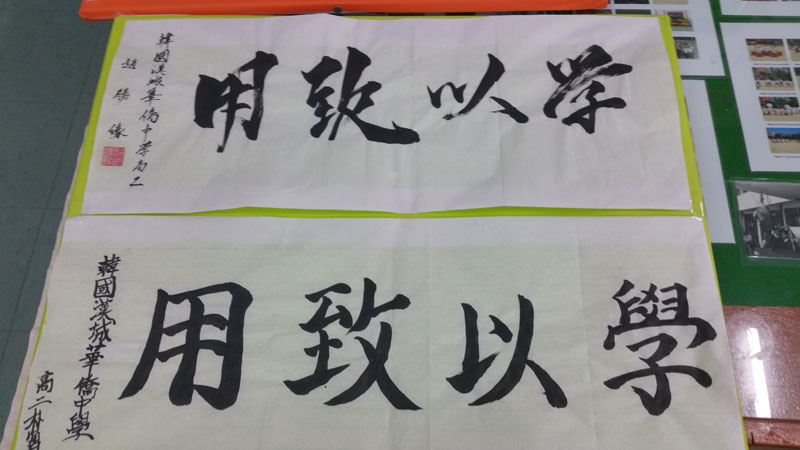 学以致用
韓國漢城華僑中学高二
趙
學以致用
韓國漢城華僑中學
高二